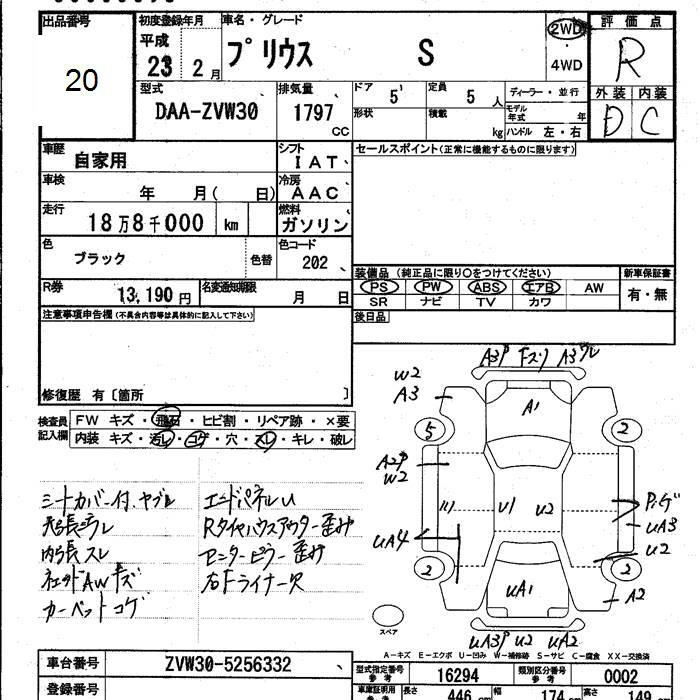 出品番号
20
初度登録年月
平成 23 2月
車名・グレード
プリウス S
2WD
4WD
評価点
R
外装 内装
D C
型式
DAA-ZVW30
排気量
1797 CC
ドア
5
定員
5 人
形状
積載
kg
ディーラー・並行
モデル年式 年
ハンドル 左・右
車歴
自家用
シフト
IAT
セールスポイント(正常に機能するものに限ります)
車検
年 月( 日)
冷房
AAC
走行
18万8千000 km
燃料
ガソリン
色
ブラック
色替
色コード
202
R券
13,190円
名変通知期限
月 日
装備品(純正品に限り○をつけてください)
PS PW ABS エアB AW
SR ナビ TV カワ
新車保証書
有・無
後日品
注意事項申告欄(不具合内容等は具体的に記入して下さい)
修復歴 有〔箇所 〕
検査員記入欄
FW キズ・飛石・ヒビ割・リペア跡・×要
内装 キズ・汚レ・コゲ・穴・スレ・キレ・破レ
シートカバー付、ヤブレ
内張スレ
カーペットコゲ
エンドパネルU
Rタイヤハウスアウター歪み
センターピラー歪み
右Fライナー欠
A3P Fスリ A3ワレ
W2
A3
A1
5
2
A2P
W2
U1
U2
UA4
UA3
U2
2
2
UA1
A2
スペア
UA3P U2 UA2
A-キズ E-エクボ U-凹み W-補修跡 S-サビ C-腐食 XX-交換済
車台番号
ZVW30-5256332
登録番号
型式指定番号 参考
16294
類別区分番号 参考
0002
車庫証明用
長さ 446 cm
幅 174 cm
高さ 149 cm